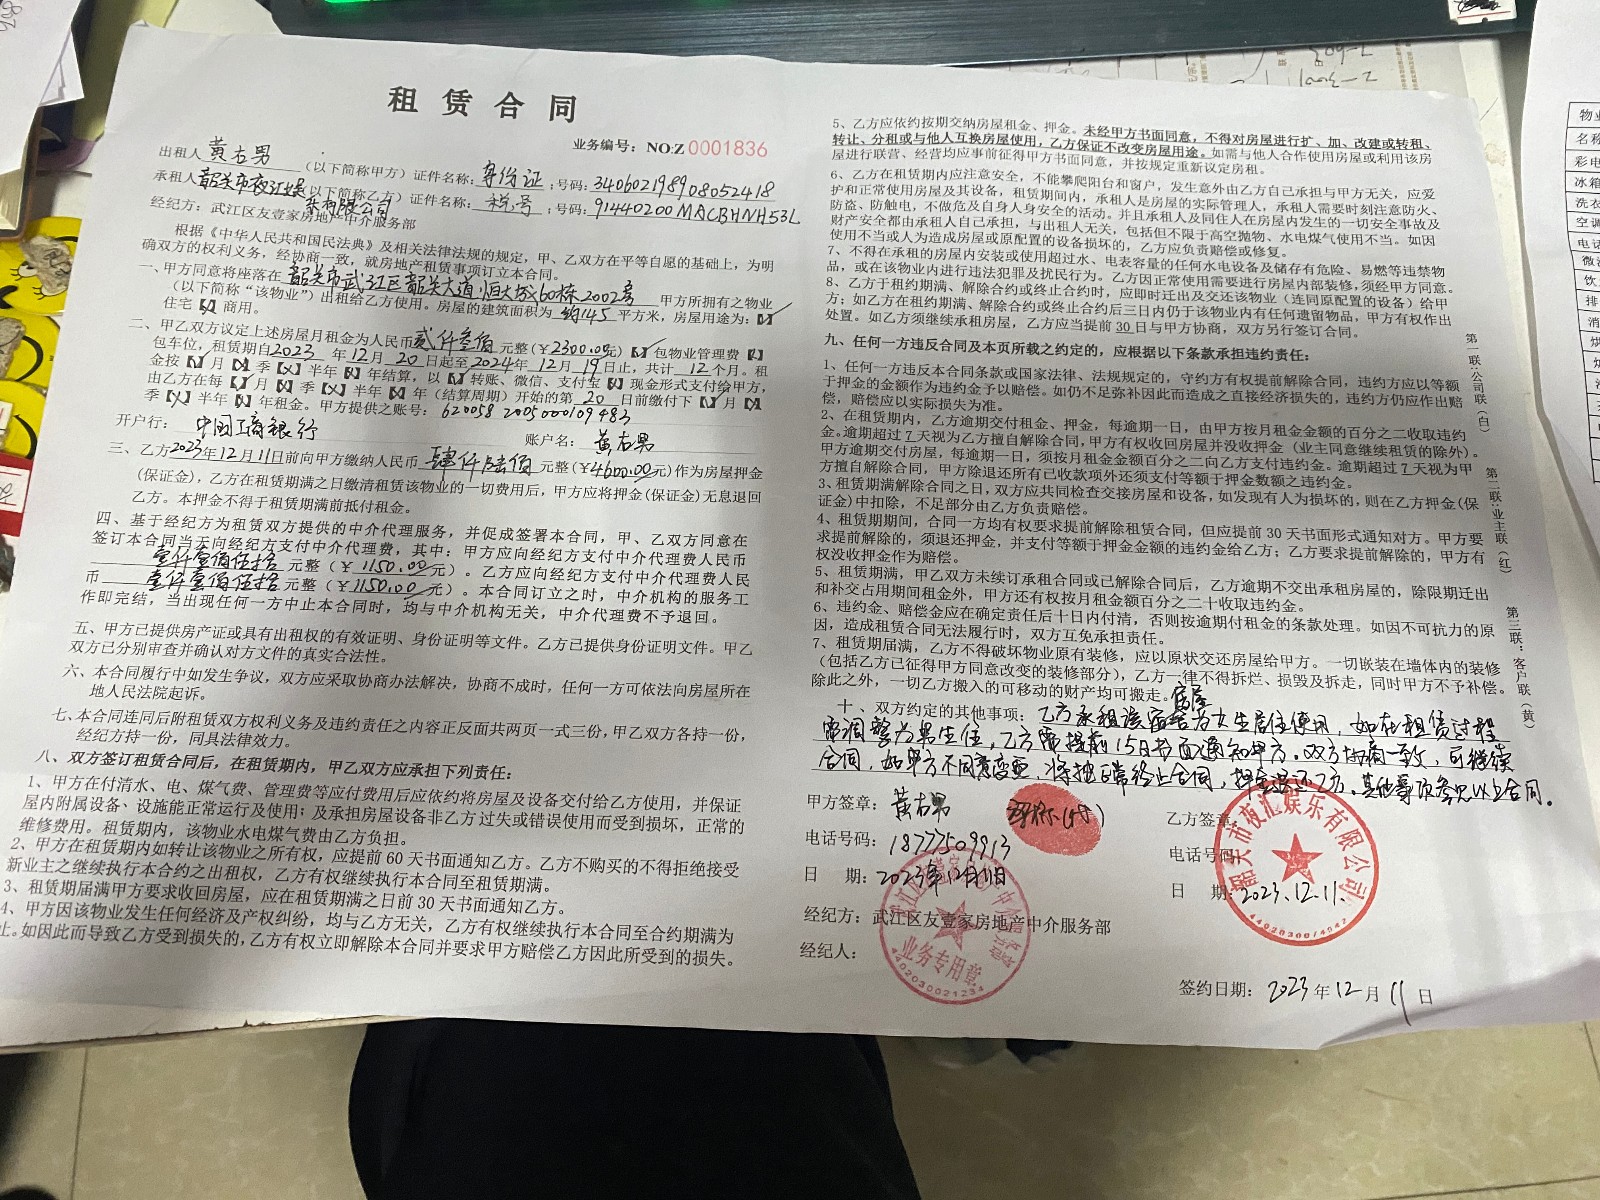 租赁合同
业务编号：NO:Z 0001836
出租人 黄右男 （以下简称甲方）证件名称：身份证；号码：340602198908052418
承租人 韶关市夜汇娱乐有限公司（以下简称乙方）证件名称：税号；号码：91440200MACBHNH53L
经纪方：武江区友壹家房地产中介服务部
根据《中华人民共和国民法典》及相关法律法规的规定，甲、乙双方在平等自愿的基础上，为明
确双方的权利义务，经协商一致，就房地产租赁事项订立本合同。
一、甲方同意将座落在 韶关市武江区韶关大道恒大城60栋2002房 甲方所拥有之物业
（以下简称“该物业”）出租给乙方使用。房屋的建筑面积为 约145 平方米，房屋用途为：【✓】
住宅【】商用。
二、甲乙双方议定上述房屋月租金为人民币 贰仟叁佰 元整（￥2300.00元）【】包物业管理费【】
包车位，租赁期自2023年12月20日起至2024年12月19日止，共计 12 个月。租
金按【✓】月【】季【】半年【】年结算，以【✓】转账、微信、支付宝【】现金形式支付给甲方，
由乙方在每【✓】月【】季【】半年【】年（结算周期）开始的第 20 日前缴付下【✓】月【】
季【】半年【】年租金。甲方提供之账号：6200582005000109483
开户行：中国工商银行 账户名：黄右男
三、乙方2023年12月11日前向甲方缴纳人民币 肆仟陆佰 元整（￥4600.00元）作为房屋押金
（保证金），乙方在租赁期满之日缴清租赁该物业的一切费用后，甲方应将押金（保证金）无息退回
乙方。本押金不得于租赁期满前抵付租金。
四、基于经纪方为租赁双方提供的中介代理服务，并促成签署本合同，甲、乙双方同意在
签订本合同当天向经纪方支付中介代理费，其中：甲方应向经纪方支付中介代理费人民币
壹仟壹佰伍拾 元整（￥1150.00元）。乙方应向经纪方支付中介代理费人民
币 壹仟壹佰伍拾 元整（￥1150.00元）。本合同订立之时，中介机构的服务工
作即完结，当出现任何一方中止本合同时，均与中介机构无关，中介代理费不予退回。
五、甲方已提供房产证或具有出租权的有效证明、身份证明等文件。乙方已提供身份证明文件。甲乙
双方已分别审查并确认对方文件的真实合法性。
六、本合同履行中如发生争议，双方应采取协商办法解决，协商不成时，任何一方可依法向房屋所在
地人民法院起诉。
七、本合同连同后附租赁双方权利义务及违约责任之内容正反面共两页一式三份，甲乙双方各持一份，
经纪方持一份，同具法律效力。
八、双方签订租赁合同后，在租赁期内，甲乙双方应承担下列责任：
1、甲方在付清水、电、煤气费、管理费等应付费用后应依约将房屋及设备交付给乙方使用，并保证
屋内附属设备、设施能正常运行及使用；及承担房屋设备非乙方过失或错误使用而受到损坏，正常的
维修费用。租赁期内，该物业水电煤气费由乙方负担。
2、甲方在租赁期内如转让该物业之所有权，应提前 60 天书面通知乙方。乙方不购买的不得拒绝接受
新业主之继续执行本合约之出租权，乙方有权继续执行本合同至租赁期满。
3、租赁期届满甲方要求收回房屋，应在租赁期满之日前 30 天书面通知乙方。
4、甲方因该物业发生任何经济及产权纠纷，均与乙方无关，乙方有权继续执行本合同至合约期满为
止。如因此而导致乙方受到损失的，乙方有权立即解除本合同并要求甲方赔偿乙方因此所受到的损失。
5、乙方应依约按期交纳房屋租金、押金。未经甲方书面同意，不得对房屋进行扩、加、改建或转租、
转让、分租或与他人互换房屋使用，乙方保证不改变房屋用途。如需与他人合作使用房屋或利用该房
屋进行联营、经营均应事前征得甲方书面同意，并按规定重新议定房租。
6、乙方在租赁期内应注意安全，不能攀爬阳台和窗户，发生意外由乙方自己承担与甲方无关，应爱
护和正常使用房屋及其设备，租赁期间内，承租人是房屋的实际管理人，承租人需要时刻注意防火、
防盗、防触电，不做危及自身人身安全的活动。并且承租人及同住人在房屋内发生的一切安全事故及
财产安全都由承租人自己承担，与出租人无关，包括但不限于高空抛物、水电煤气使用不当。如因
使用不当或人为造成房屋或原配置的设备损坏的，乙方应负责赔偿或修复。
7、不得在承租的房屋内安装或使用超过水、电表容量的任何水电设备及储存有危险、易燃等违禁物
品，或在该物业内进行违法犯罪及扰民行为。乙方因正常使用需要进行房屋内部装修，须经甲方同意。
8、乙方于租约期满、解除合约或终止合约时，应即时迁出及交还该物业（连同原配置的设备）给甲
方；如乙方在租约期满、解除合约或终止合约后三日内仍于该物业内有任何遗留物品，甲方有权作出
处置。如乙方须继续承租房屋，乙方应当提前 30 日与甲方协商，双方另行签订合同。
九、任何一方违反合同及本页所载之约定的，应根据以下条款承担违约责任：
1、任何一方违反本合同条款或国家法律、法规规定的，守约方有权提前解除合同，违约方应以等额
于押金的金额作为违约金予以赔偿。如仍不足弥补因此而造成之直接经济损失的，违约方仍应作出赔
偿，赔偿应以实际损失为准。
2、在租赁期内，乙方逾期交付租金、押金，每逾期一日，由甲方按月租金金额的百分之二收取违约
金。逾期超过 7 天视为乙方擅自解除合同，甲方有权收回房屋并没收押金（业主同意继续租赁的除外）。
甲方逾期交付房屋，每逾期一日，须按月租金金额百分之二向乙方支付违约金。逾期超过 7 天视为甲
方擅自解除合同，甲方除退还所有已收款项外还须支付等额于押金数额之违约金。
3、租赁期满解除合同之日，双方应共同检查交接房屋和设备，如发现有人为损坏的，则在乙方押金（保
证金）中扣除，不足部分由乙方负责赔偿。
4、租赁期期间，合同一方均有权要求提前解除租赁合同，但应提前 30 天书面形式通知对方。甲方要
求提前解除的，须退还押金，并支付等额于押金金额的违约金给乙方；乙方要求提前解除的，甲方有
权没收押金作为赔偿。
5、租赁期满，甲乙双方未续订承租合同或已解除合同后，乙方逾期不交出承租房屋的，除限期迁出
和补交占用期间租金外，甲方还有权按月租金额百分之二十收取违约金。
6、违约金、赔偿金应在确定责任后十日内付清，否则按逾期付租金的条款处理。如因不可抗力的原
因，造成租赁合同无法履行时，双方互免承担责任。
7、租赁期届满，乙方不得破坏物业原有装修，应以原状交还房屋给甲方。一切嵌装在墙体内的装修
（包括乙方已征得甲方同意改变的装修部分），乙方一律不得拆烂、损毁及拆走，同时甲方不予补偿。
除此之外，一切乙方搬入的可移动的财产均可搬走。
十、双方约定的其他事项：乙方承租该房屋宿舍为女生居住使用，如在租赁过程
需调整为男生住，乙方需提前15日书面通知甲方。双方协商一致，可继续
合同，如甲方不同意变更，将按正常终止合同，押金退还乙方。其他事项参见以上合同。
甲方签章：黄右男
电话号码：18777509913
日 期：2023年12月11日
经纪方：武江区友壹家房地产中介服务部
经纪人：
业务专用章
4402030021234
乙方签章：
电话号码
日 期：2023.12.11.
韶关市夜汇娱乐有限公司
签约日期：2023年12月11日
第一联：公司联（白）
第二联：业主联（红）
第三联：客户联（黄）
物业
名称
彩电
冰箱
洗衣
空调
电话
微波
饮
排
消